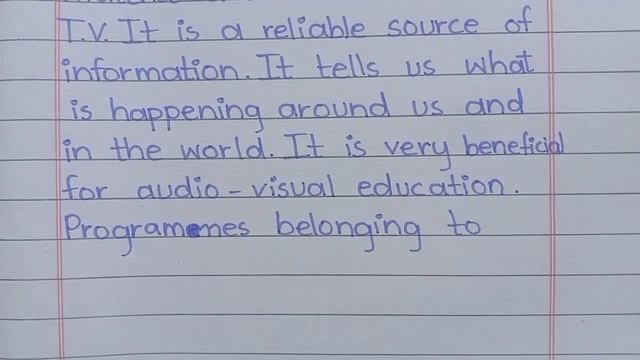 T.V. It is a reliable source of
information. It tells us what
is happening around us and
in the world. It is very beneficial
for audio-visual education.
Programmes belonging to